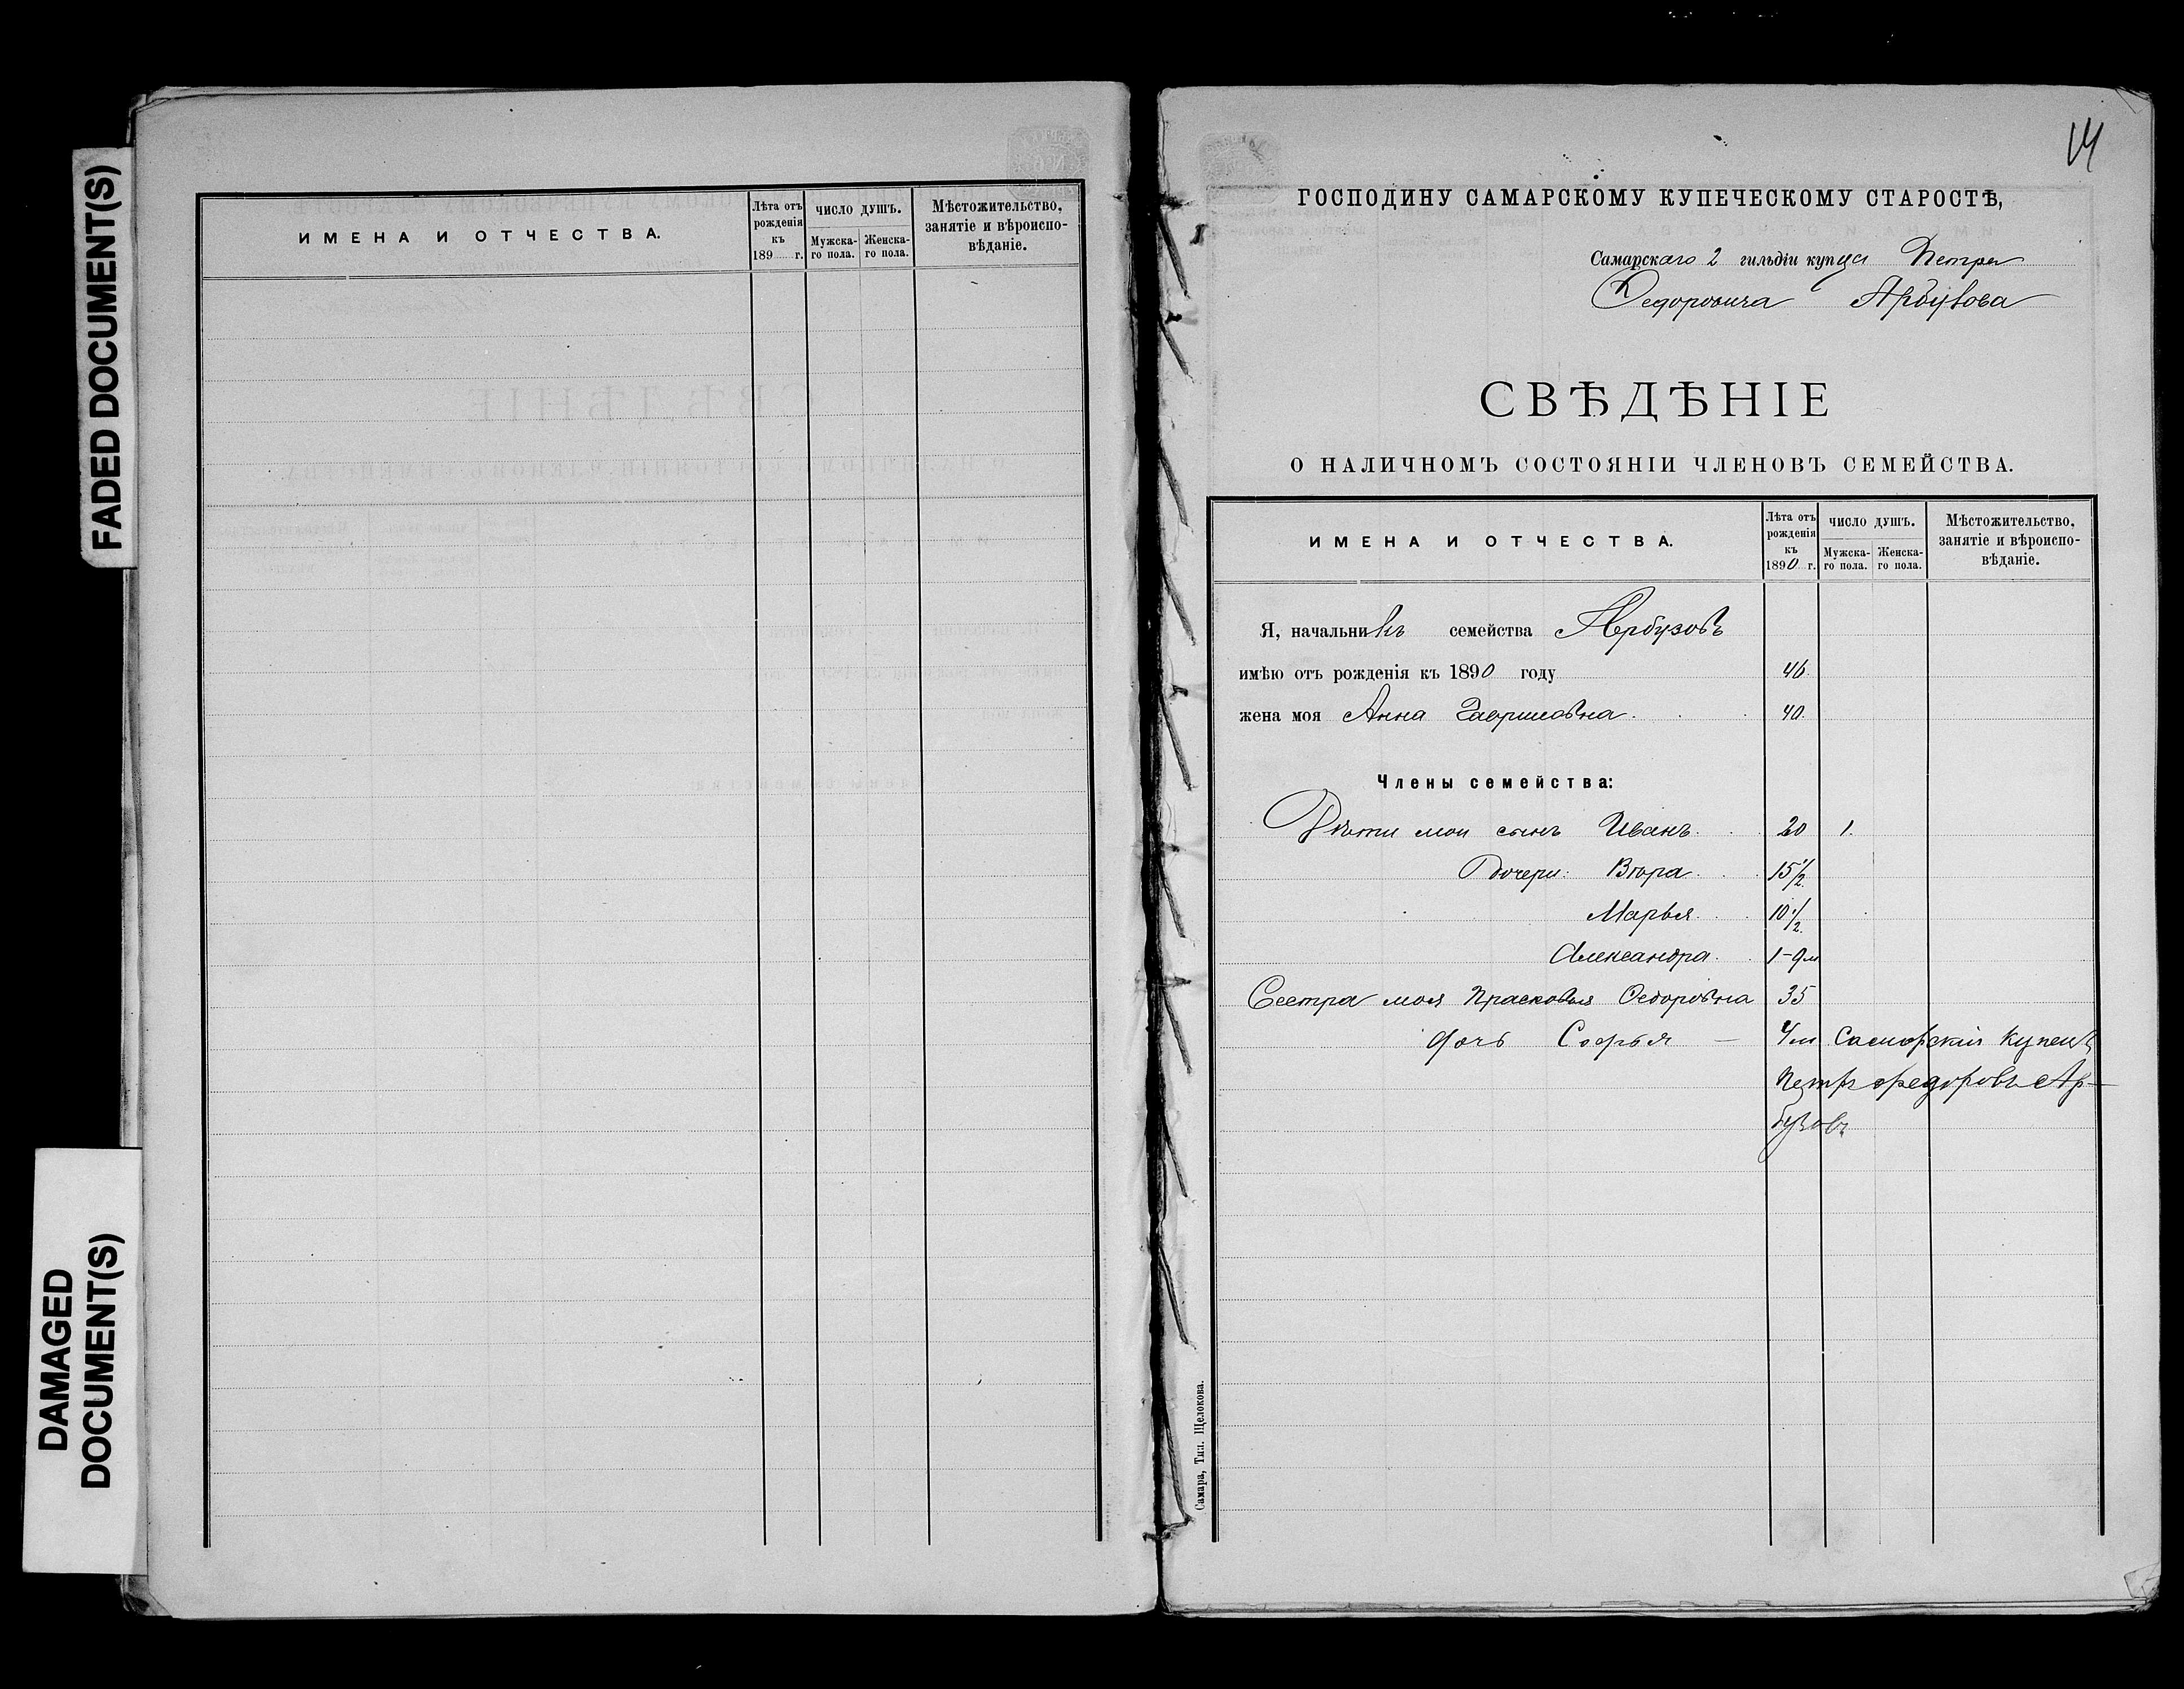 FADED DOCUMENT(S)
DAMAGED
DOCUMENT(S)
ИМЕНА И ОТЧЕСТВА.
Лѣта отъ рожденія къ 189 г.
ЧИСЛО ДУШЪ.
Мужска-го пола.
Женска-го пола.
Мѣстожительство, занятіе и вѣроиспо-вѣданіе.
14
ГОСПОДИНУ САМАРСКОМУ КУПЕЧЕСКОМУ СТАРОСТѢ,
Самарскаго 2 гильдіи купца Петра
Федоровича Арбузова
СВѢДѢНІЕ
О НАЛИЧНОМЪ СОСТОЯНІИ ЧЛЕНОВЪ СЕМЕЙСТВА.
ИМЕНА И ОТЧЕСТВА.
Лѣта отъ рожденія къ 1890 г.
ЧИСЛО ДУШЪ.
Мужска-го пола.
Женска-го пола.
Мѣстожительство, занятіе и вѣроиспо-вѣданіе.
Я, начальникъ семейства Арбузовъ
имѣю отъ рожденія къ 1890 году 46
жена моя Анна Гавриловна 40
Члены семейства:
Дѣти мои сынъ Иванъ 20 1.
Дочери: Вѣра 15 1/2
Марья 10 1/2
Александра 1-9м
Сестра моя Прасковья Федоровна 35
дочь Софья — 4м Самарскій Купецъ
Петръ Федоровъ Ар-
бузовъ
Самара, Тип. Щелокова.